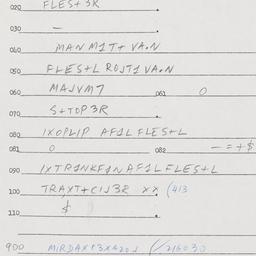 020 FLES+ 3R
030 —
040 MANM1T+ VA.N
050 FLES+L ROJT1 VA.N
060 MAJVM7 061 0
070 S+TOP3R
080 1XOPLIP AF1L FLES+L
081 0 082 - = + $
090 1XTR1NKF1N AF1L FLES+L
100 TRAXT+C1J3R XX (413
$
110
900 MIRDAX